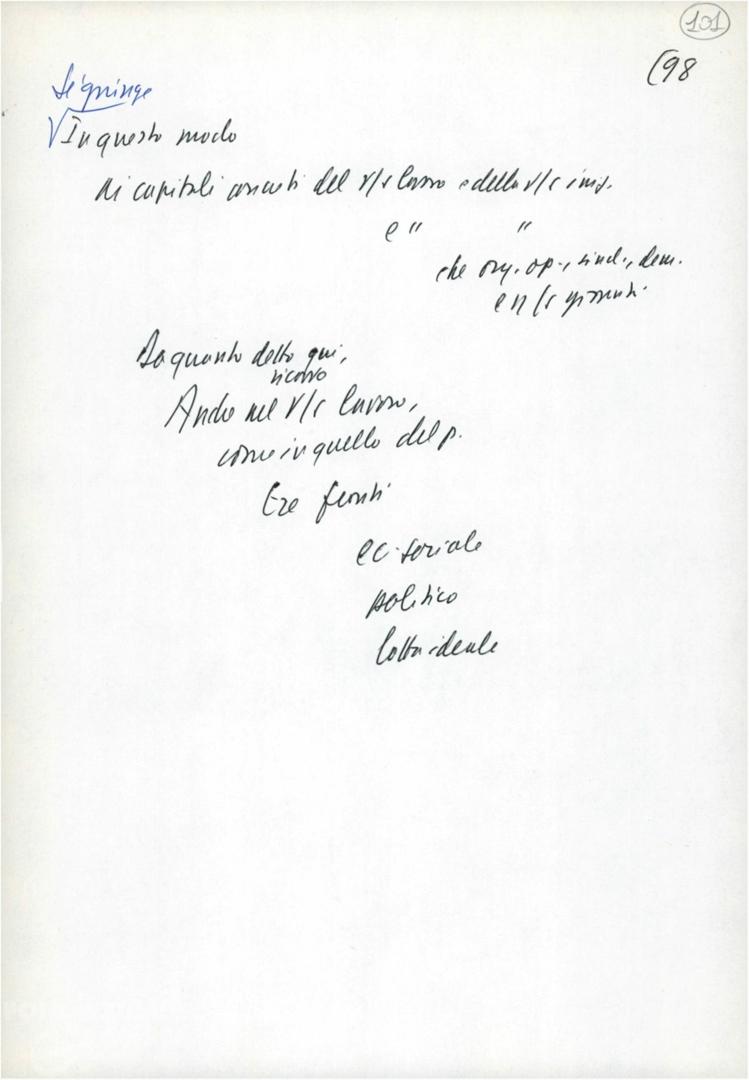 101
(98
Si giunge
In questo modo
Ai capitoli del v/s lavoro e della v/s
e " "
che org. op., sind., dem.
e n/s
Da quanto detto qui,
ricavo
Anche nel v/s lavoro,
come in quello del p.
tre fronti
ec. sociale
politico
lotta ideale